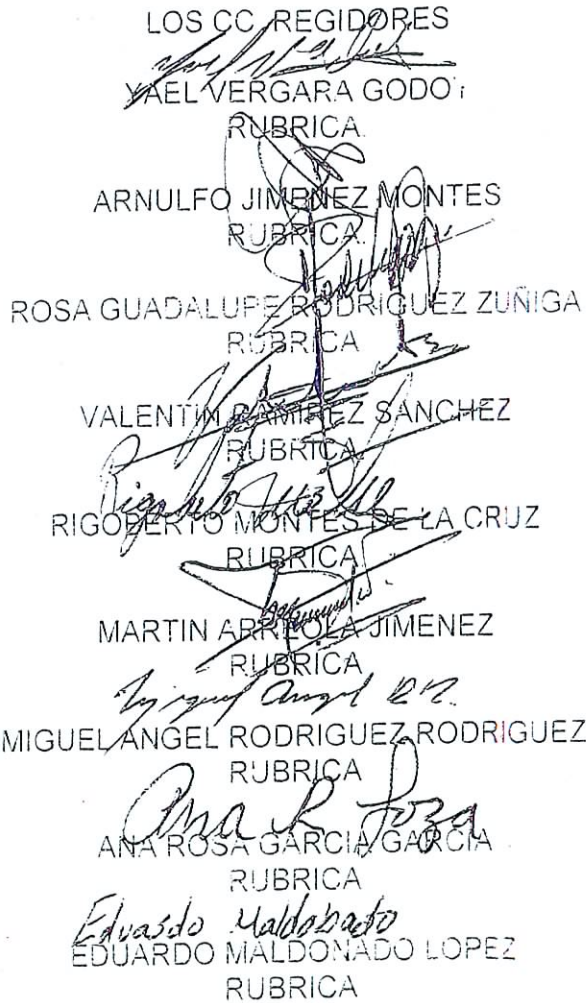 LOS CC. REGIDORES
YAEL VERGARA GODO
RUBRICA.
ARNULFO JIMENEZ MONTES
RUBRICA.
ROSA GUADALUPE RODRIGUEZ ZUÑIGA
RUBRICA
VALENTIN RAMIREZ SANCHEZ
RUBRICA
Rigoberto
RIGOBERTO MONTES DE LA CRUZ
RUBRICA
MARTIN ARREOLA JIMENEZ
RUBRICA
Miguel Angel R.R.
MIGUEL ANGEL RODRIGUEZ RODRIGUEZ
RUBRICA
Ana R
ANA ROSA GARCIA GARCIA
RUBRICA
Eduardo Maldonado
EDUARDO MALDONADO LOPEZ
RUBRICA